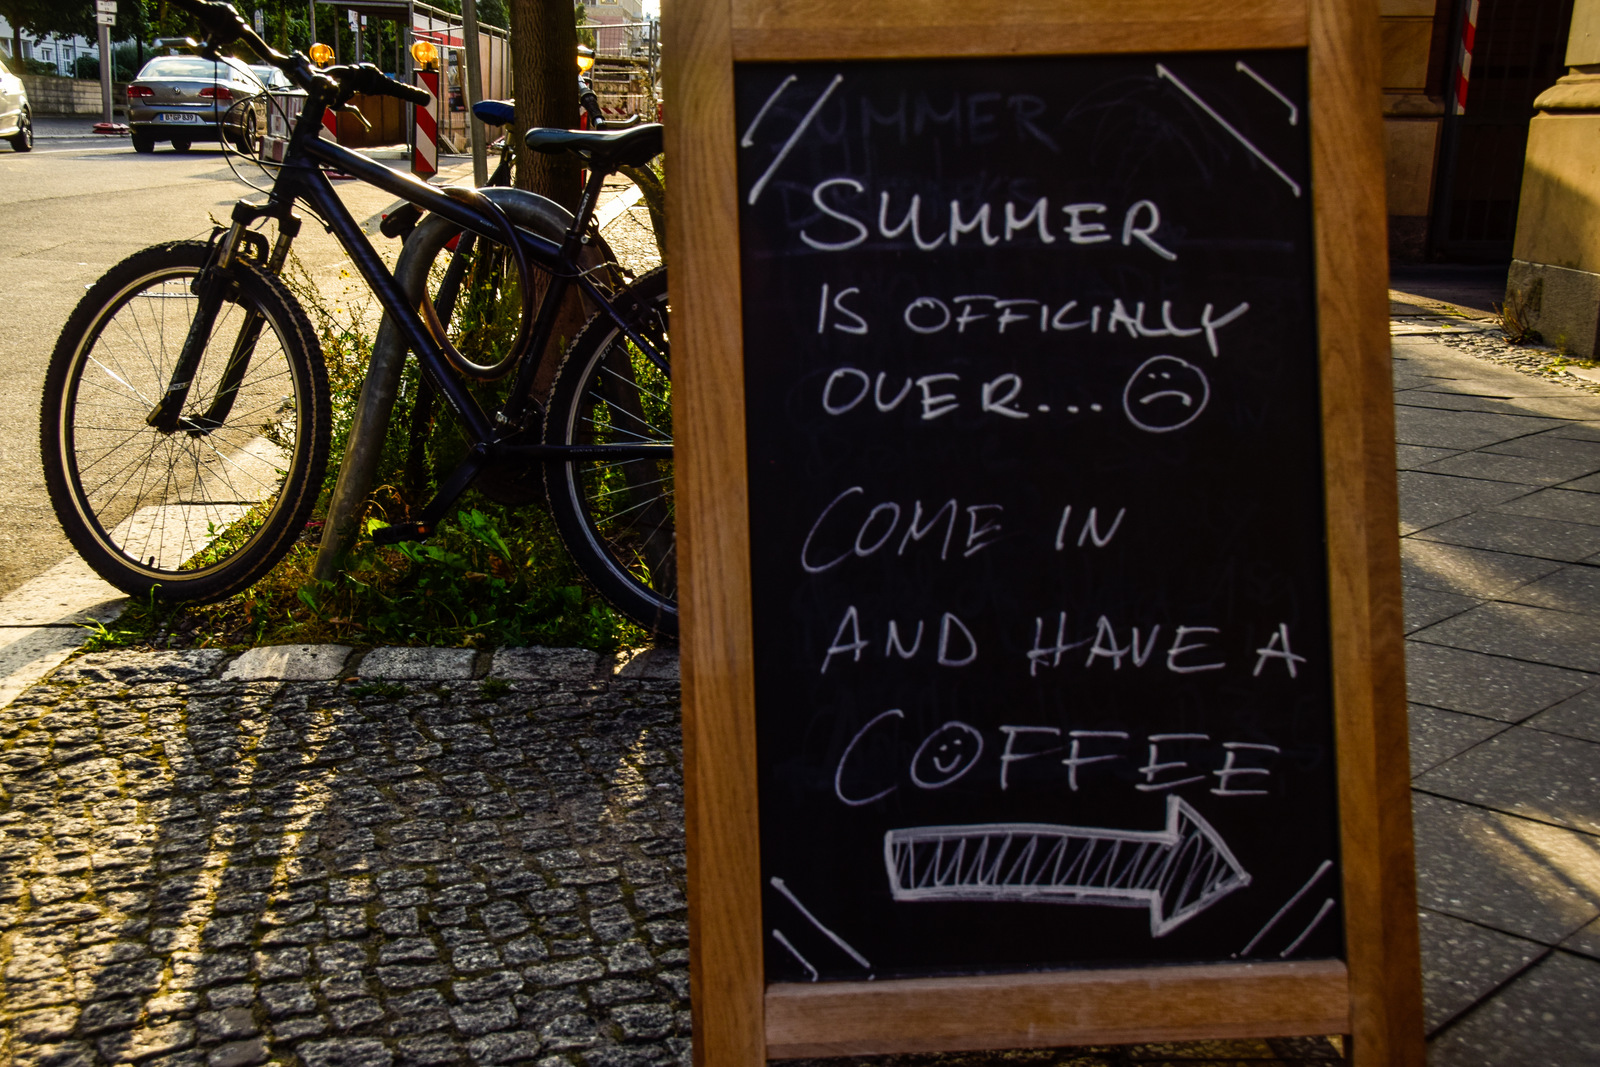 SUMMER
SUMMER
IS OFFICIALLY
OVER...
COME IN
AND HAVE A
COFFEE